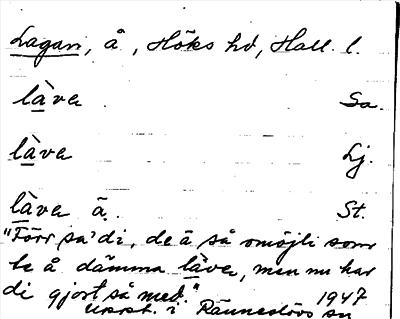 Lagan, å, Höks hd, Hall. l.
làva Sa.
làva Lj.
làva ä. St.
"Förr sa' di, de ä så omöjli som
te å dämma làva, men nu har
di gjort så med." 1947
Uppt. i Ränneslövs sn